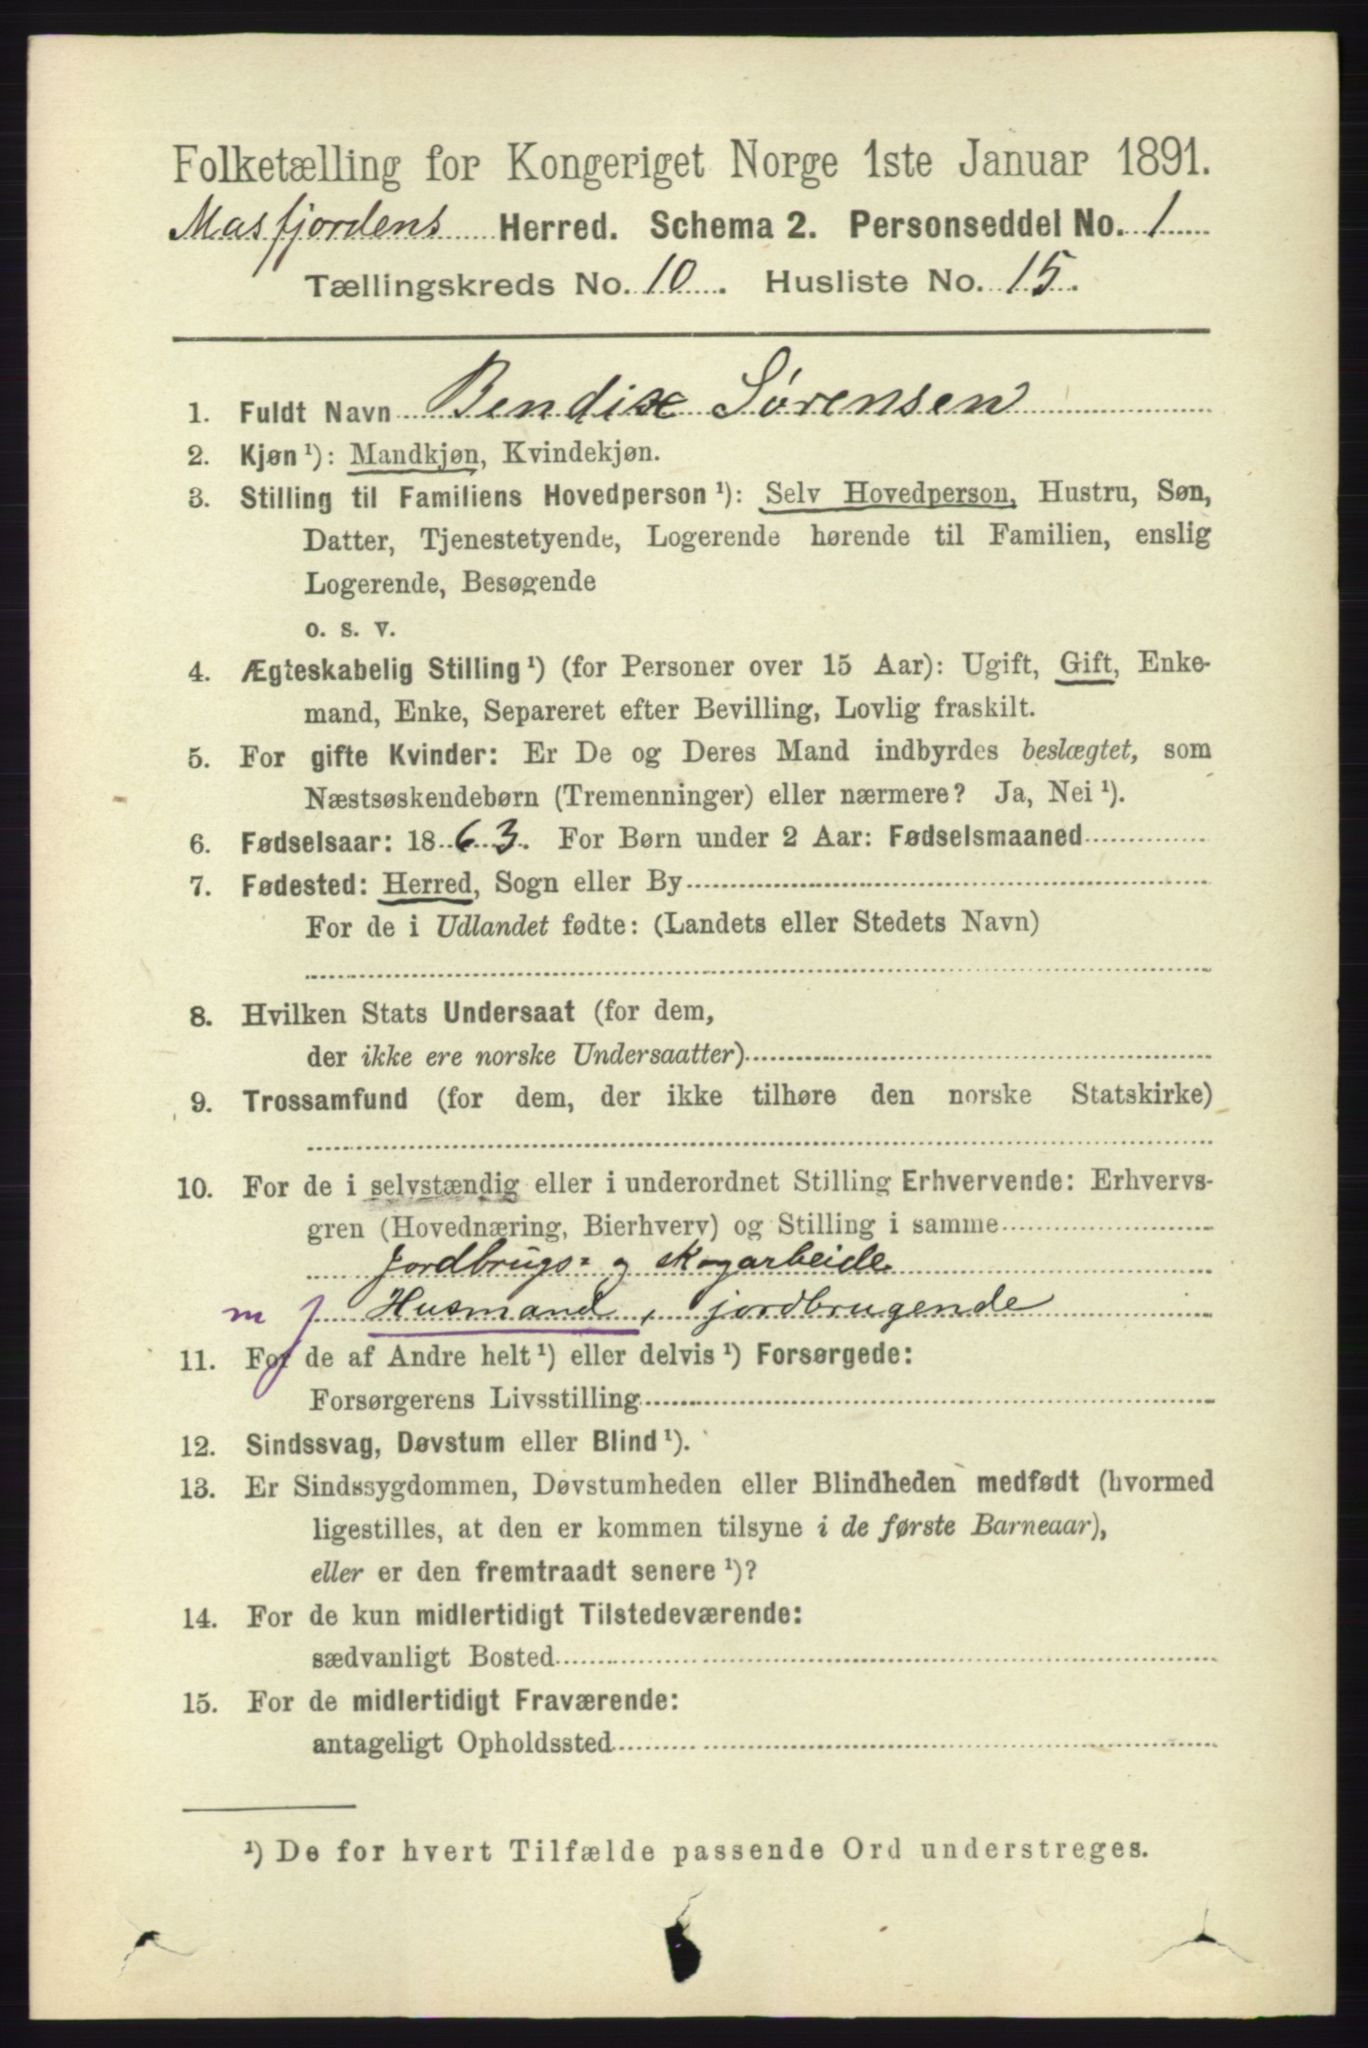 Folketælling for Kongeriget Norge 1ste Januar 1891.
Masfjordens Herred. Schema 2. Personseddel No. 1
Tællingskreds No. 10. Husliste No. 15.
1. Fuldt Navn Bendix Sørensen
2. Kjøn ¹): Mandkjøn, Kvindekjøn.
3. Stilling til Familiens Hovedperson ¹): Selv Hovedperson, Hustru, Søn,
Datter, Tjenestetyende, Logerende hørende til Familien, enslig
Logerende, Besøgende
o. s. v.
4. Ægteskabelig Stilling ¹) (for Personer over 15 Aar): Ugift, Gift, Enke-
mand, Enke, Separeret efter Bevilling, Lovlig fraskilt.
5. For gifte Kvinder: Er De og Deres Mand indbyrdes beslægtet, som
Næstsøskendebørn (Tremenninger) eller nærmere? Ja, Nei ¹).
6. Fødselsaar: 1863. For Børn under 2 Aar: Fødselsmaaned
7. Fødested: Herred, Sogn eller By
For de i Udlandet fødte: (Landets eller Stedets Navn)
8. Hvilken Stats Undersaat (for dem,
der ikke ere norske Undersaatter)
9. Trossamfund (for dem, der ikke tilhøre den norske Statskirke)
10. For de i selvstændig eller i underordnet Stilling Erhvervende: Erhvervs-
gren (Hovednæring, Bierhverv) og Stilling i samme
Jordbrugs= og skogarbeide
m j Husmand, jordbrugende
11. For de af Andre helt ¹) eller delvis ¹) Forsørgede:
Forsørgerens Livsstilling
12. Sindssvag, Døvstum eller Blind ¹).
13. Er Sindssygdommen, Døvstumheden eller Blindheden medfødt (hvormed
ligestilles, at den er kommen tilsyne i de første Barneaar),
eller er den fremtraadt senere ¹)?
14. For de kun midlertidigt Tilstedeværende:
sædvanligt Bosted
15. For de midlertidigt Fraværende:
antageligt Opholdssted
¹) De for hvert Tilfælde passende Ord understreges.